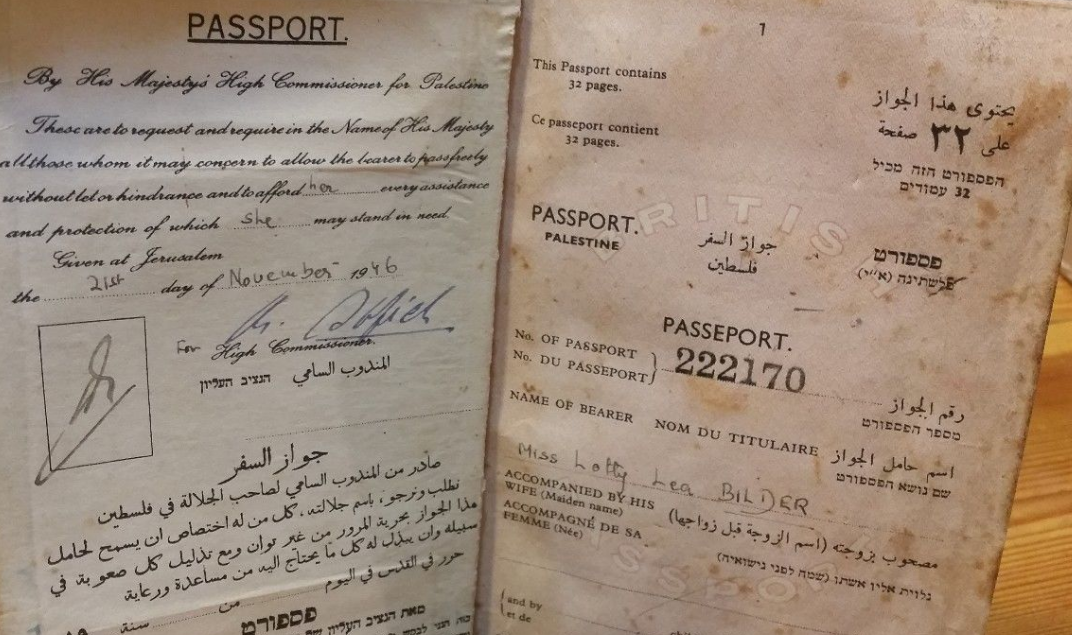 PASSPORT.
By His Majesty's High Commissioner for Palestine
These are to request and require in the Name of His Majesty
all those whom it may concern to allow the bearer to pass freely
without let or hindrance and to afford her every assistance
and protection of which she may stand in need.
Given at Jerusalem
the 21st day of November 1946
For High Commissioner.
المندوب السامي הנציב העליון
جواز السفر
صادر من المندوب السامي لصاحب الجلالة في فلسطين
نطلب ونرجو، باسم جلالته، كل من له اختصاص ان يسمح لحامل
هذا الجواز بحرية المرور من غير توان ومع تذليل كل صعوبة في
سبيله وان يبذل له كل ما يحتاج اليه من مساعدة ورعاية
حرر في القدس في اليوم
من سنة
פספורט
מאת הנציב העליון
7
This Passport contains
32 pages.
يحتوى هذا الجواز
على ٣٢ صفحة
Ce passeport contient
32 pages.
הפספורט הזה מכיל
32 עמודים
BRITIS
PASSPORT.
PALESTINE
جواز السفر
فلسطين
פספורט
פלשתינה (א״י)
PASSEPORT.
No. OF PASSPORT
No. DU PASSEPORT
222170
رقم الجواز
מספר הפספורט
NAME OF BEARER NOM DU TITULAIRE اسم حامل الجواز
שם נושא הפספורט
Miss Lotty Lea BILDER
ACCOMPANIED BY HIS
WIFE (Maiden name)
ACCOMPAGNÉ DE SA
FEMME (Née)
مصحوب بزوجته (اسم الزوجة قبل زواجها)
נלוית אליו אשתו (שמה לפני נישואיה)
SSPO
and by
et de